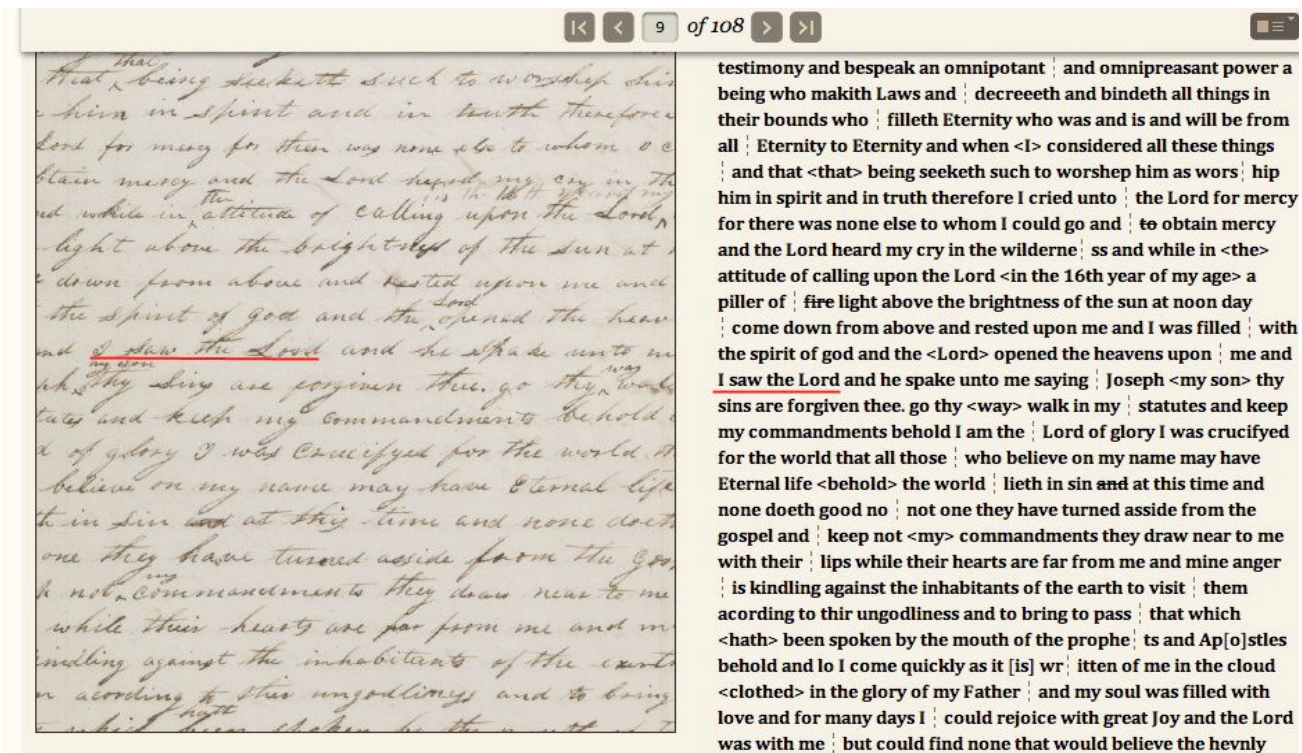 9 of 108
that
that being seeketh such to worshep him
him in spirit and in truth therefore
Lord for mercy for there was none else to whom I c
btain mercy and the Lord heard my cry in th
the in the 16th year of my
nd while in attitude of calling upon the Lord
light above the brightness of the sun at n
down from above and rested upon me and
Lord
the spirit of god and the opened the heav
nd I saw the Lord and he spake unto m
my son was
ph thy sins are forgiven thee. go thy walk
tutes and keep my commandments behold
d of glory I was crucifyed for the world th
believe on my name may have Eternal life
th in sin and at this time and none doeth
one they have turned asside from the gos
my
p not commandments they draw near to me
while their hearts are far from me and m
indling against the inhabitants of the earth
m acording to thir ungodliness and to bring
hath
t which been spoken by the mouth of
testimony and bespeak an omnipotant ¦ and omnipreasant power a
being who makith Laws and ¦ decreeeth and bindeth all things in
their bounds who ¦ filleth Eternity who was and is and will be from
all ¦ Eternity to Eternity and when <I> considered all these things
¦ and that <that> being seeketh such to worshep him as wors¦ hip
him in spirit and in truth therefore I cried unto ¦ the Lord for mercy
for there was none else to whom I could go and ¦ to obtain mercy
and the Lord heard my cry in the wilderne¦ ss and while in <the>
attitude of calling upon the Lord <in the 16th year of my age> a
piller of ¦ fire light above the brightness of the sun at noon day
¦ come down from above and rested upon me and I was filled ¦ with
the spirit of god and the <Lord> opened the heavens upon ¦ me and
I saw the Lord and he spake unto me saying ¦ Joseph <my son> thy
sins are forgiven thee. go thy <way> walk in my ¦ statutes and keep
my commandments behold I am the ¦ Lord of glory I was crucifyed
for the world that all those ¦ who believe on my name may have
Eternal life <behold> the world ¦ lieth in sin and at this time and
none doeth good no ¦ not one they have turned asside from the
gospel and ¦ keep not <my> commandments they draw near to me
with their ¦ lips while their hearts are far from me and mine anger
¦ is kindling against the inhabitants of the earth to visit ¦ them
acording to thir ungodliness and to bring to pass ¦ that which
<hath> been spoken by the mouth of the prophe¦ ts and Ap[o]stles
behold and lo I come quickly as it [is] wr¦ itten of me in the cloud
<clothed> in the glory of my Father ¦ and my soul was filled with
love and for many days I ¦ could rejoice with great Joy and the Lord
was with me ¦ but could find none that would believe the hevnly